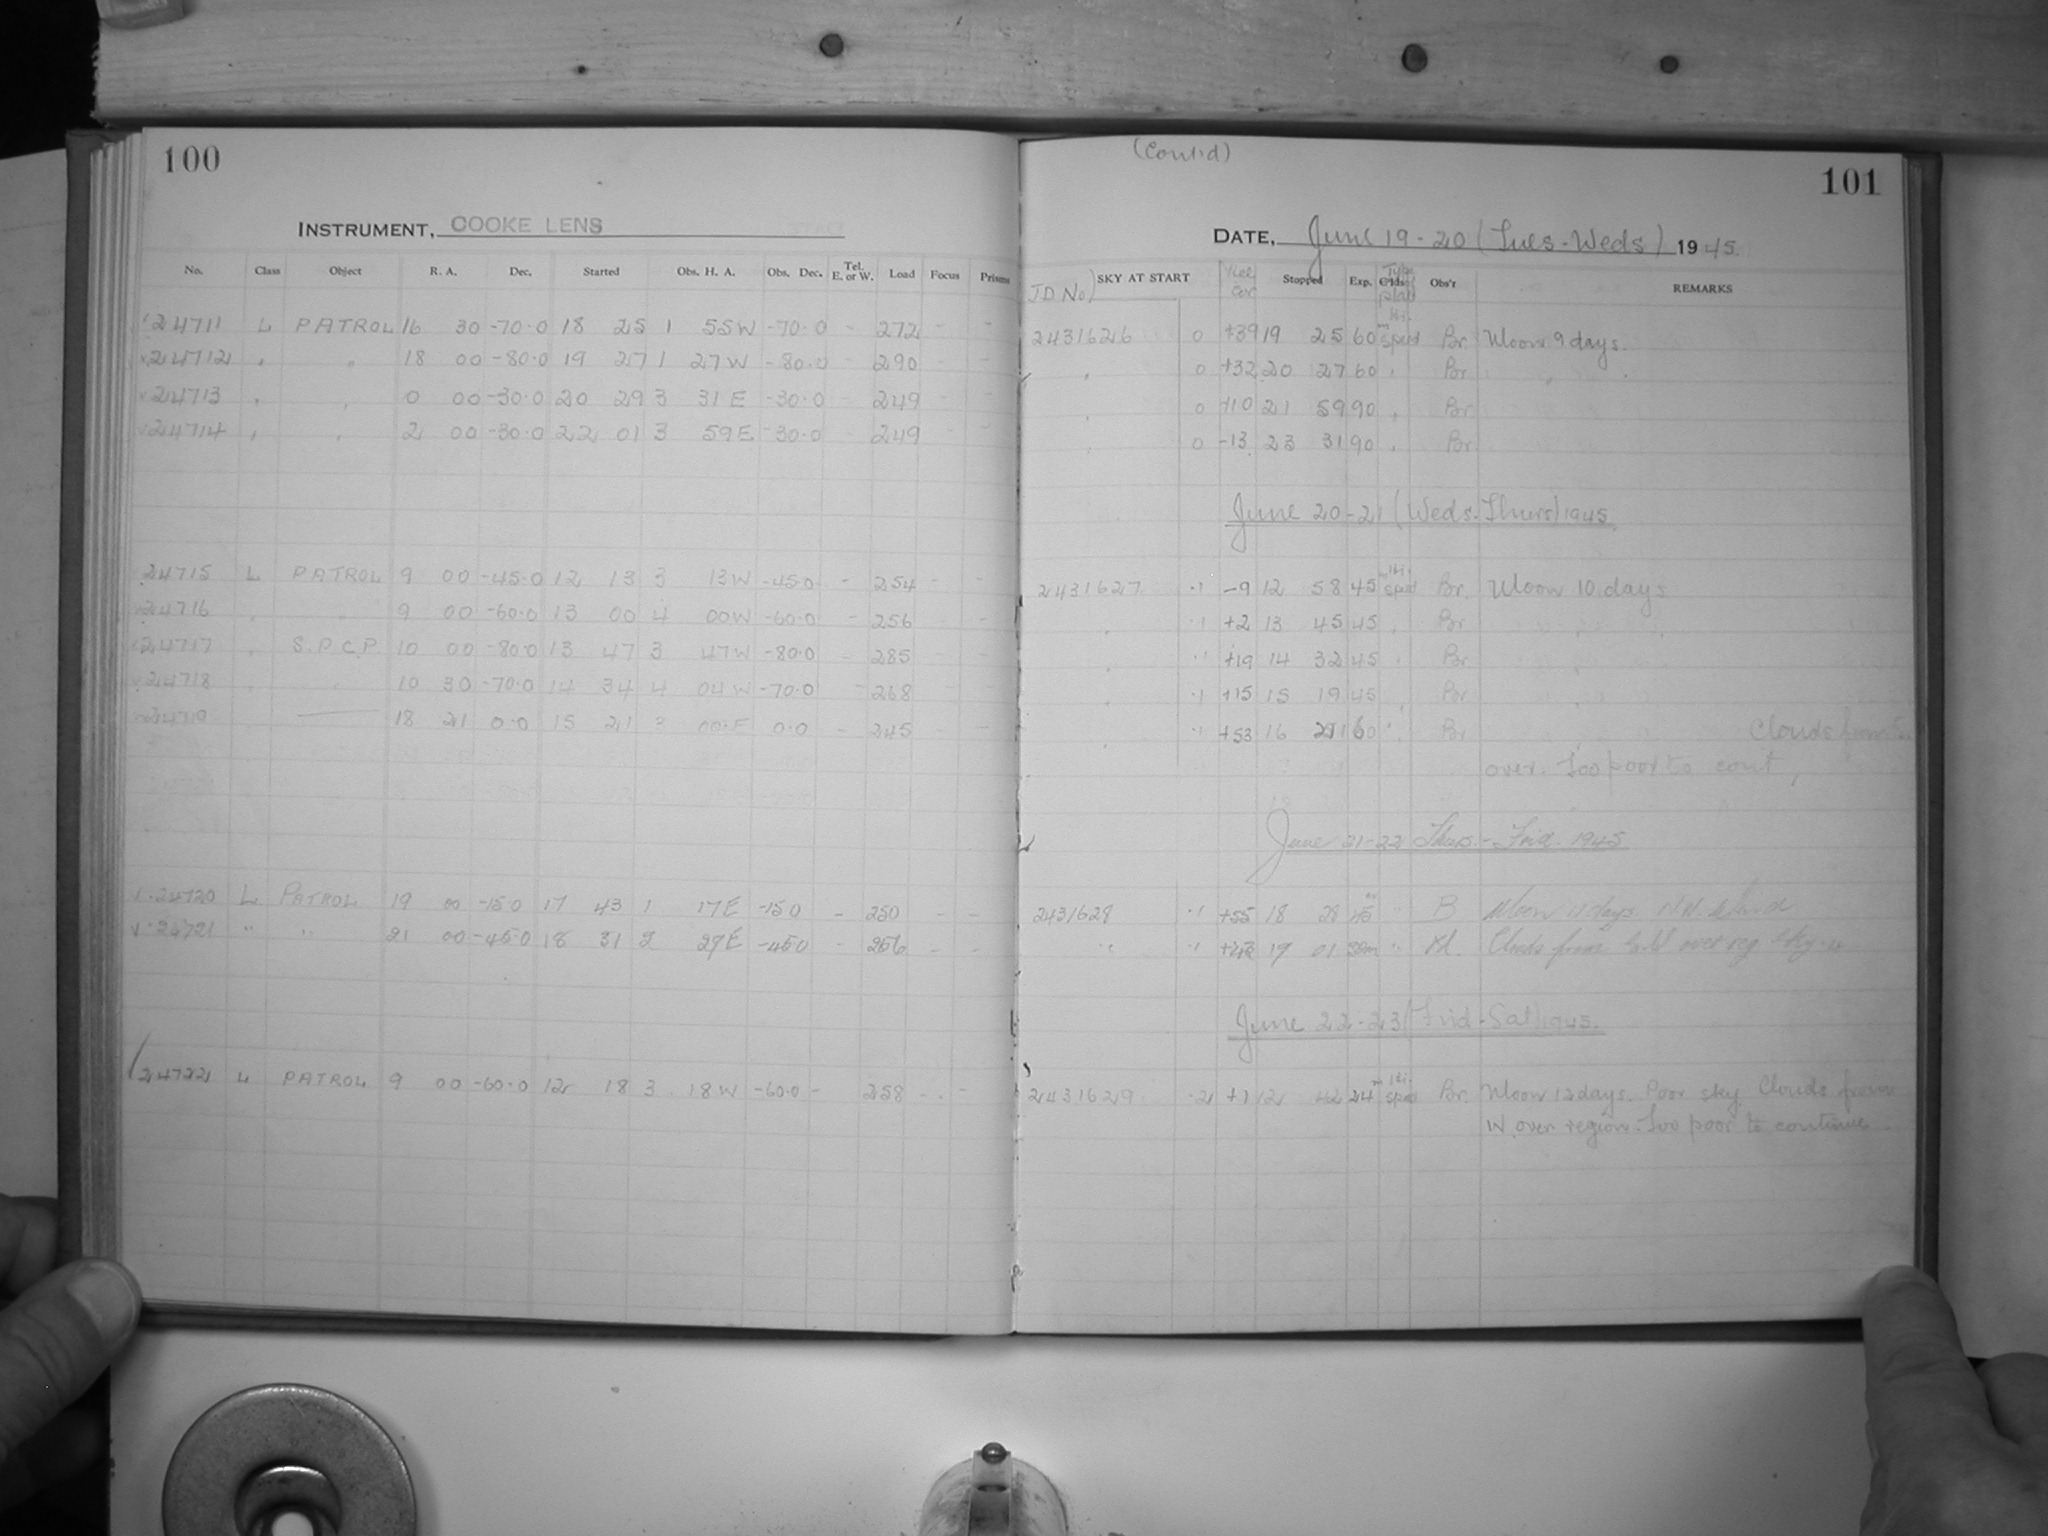 100
INSTRUMENT, COOKE LENS
No. Class Object R. A. Dec. Started Obs. H. A. Obs. Dec. Tel. E. or W. Load Focus Prisms
24711 L PATROL 16 30 -70.0 18 25 1 55W -70.0 - 272 - -
24712 " " 18 00 -80.0 19 27 1 27W -80.0 - 290 - -
24713 " " 0 00 -30.0 20 29 3 31E -30.0 - 249 - -
24714 " " 2 00 -30.0 22 01 3 59E -30.0 - 249 - -
24715 L PATROL 9 00 -45.0 12 13 3 13W -45.0 - 254 - -
24716 " " 9 00 -60.0 13 00 4 00W -60.0 - 256 - -
24717 " S.P.C.P. 10 00 -80.0 13 47 3 47W -80.0 - 285 - -
24718 " " 10 30 -70.0 14 34 4 04W -70.0 - 268 - -
24719 — 18 21 0.0 15 21 3 00.E 0.0 - 245 - -
24720 L PATROL 19 00 -15.0 17 43 1 17E -15.0 - 250 - -
24721 " " 21 00 -45.0 18 31 2 29E -45.0 - 256 - -
24722 L PATROL 9 00 -60.0 12 18 3 18W -60.0 - 258 - -
(Cont'd)
101
DATE, June 19-20 (Tues-Weds) 1945.
JD No) SKY AT START Stopped Exp. Type plate Obs'r REMARKS
2431626 0 +39 19 25 60m Spud Br. Moon 9 days.
" 0 +32 20 27 60 " Br " "
" 0 +10 21 59 90 " Br
" 0 -13 23 31 90 " Br
June 20-21 (Weds-Thurs) 1945.
2431627 .1 -9 12 58 45m Br. Moon 10 days
" .1 +2 13 45 45 " Br " "
" .1 +19 14 32 45 " Br
" .1 +15 15 19 45 " Br
" .1 +53 16 21 60 " Br " Clouds from
over. Too poor to cont.
June 21-22 Thurs.-Frid. 1945
2431628 .1 +55 18 28 45m " B Moon 11 days. N.W. Wind
" .1 19 01 30m " Clouds from over reg Sky
June 22-23 (Frid-Sat) 1945.
2431629 .2 +1 12 42 24m Br. Moon 12 days. Poor sky. Clouds from
W. over region. Too poor to continue